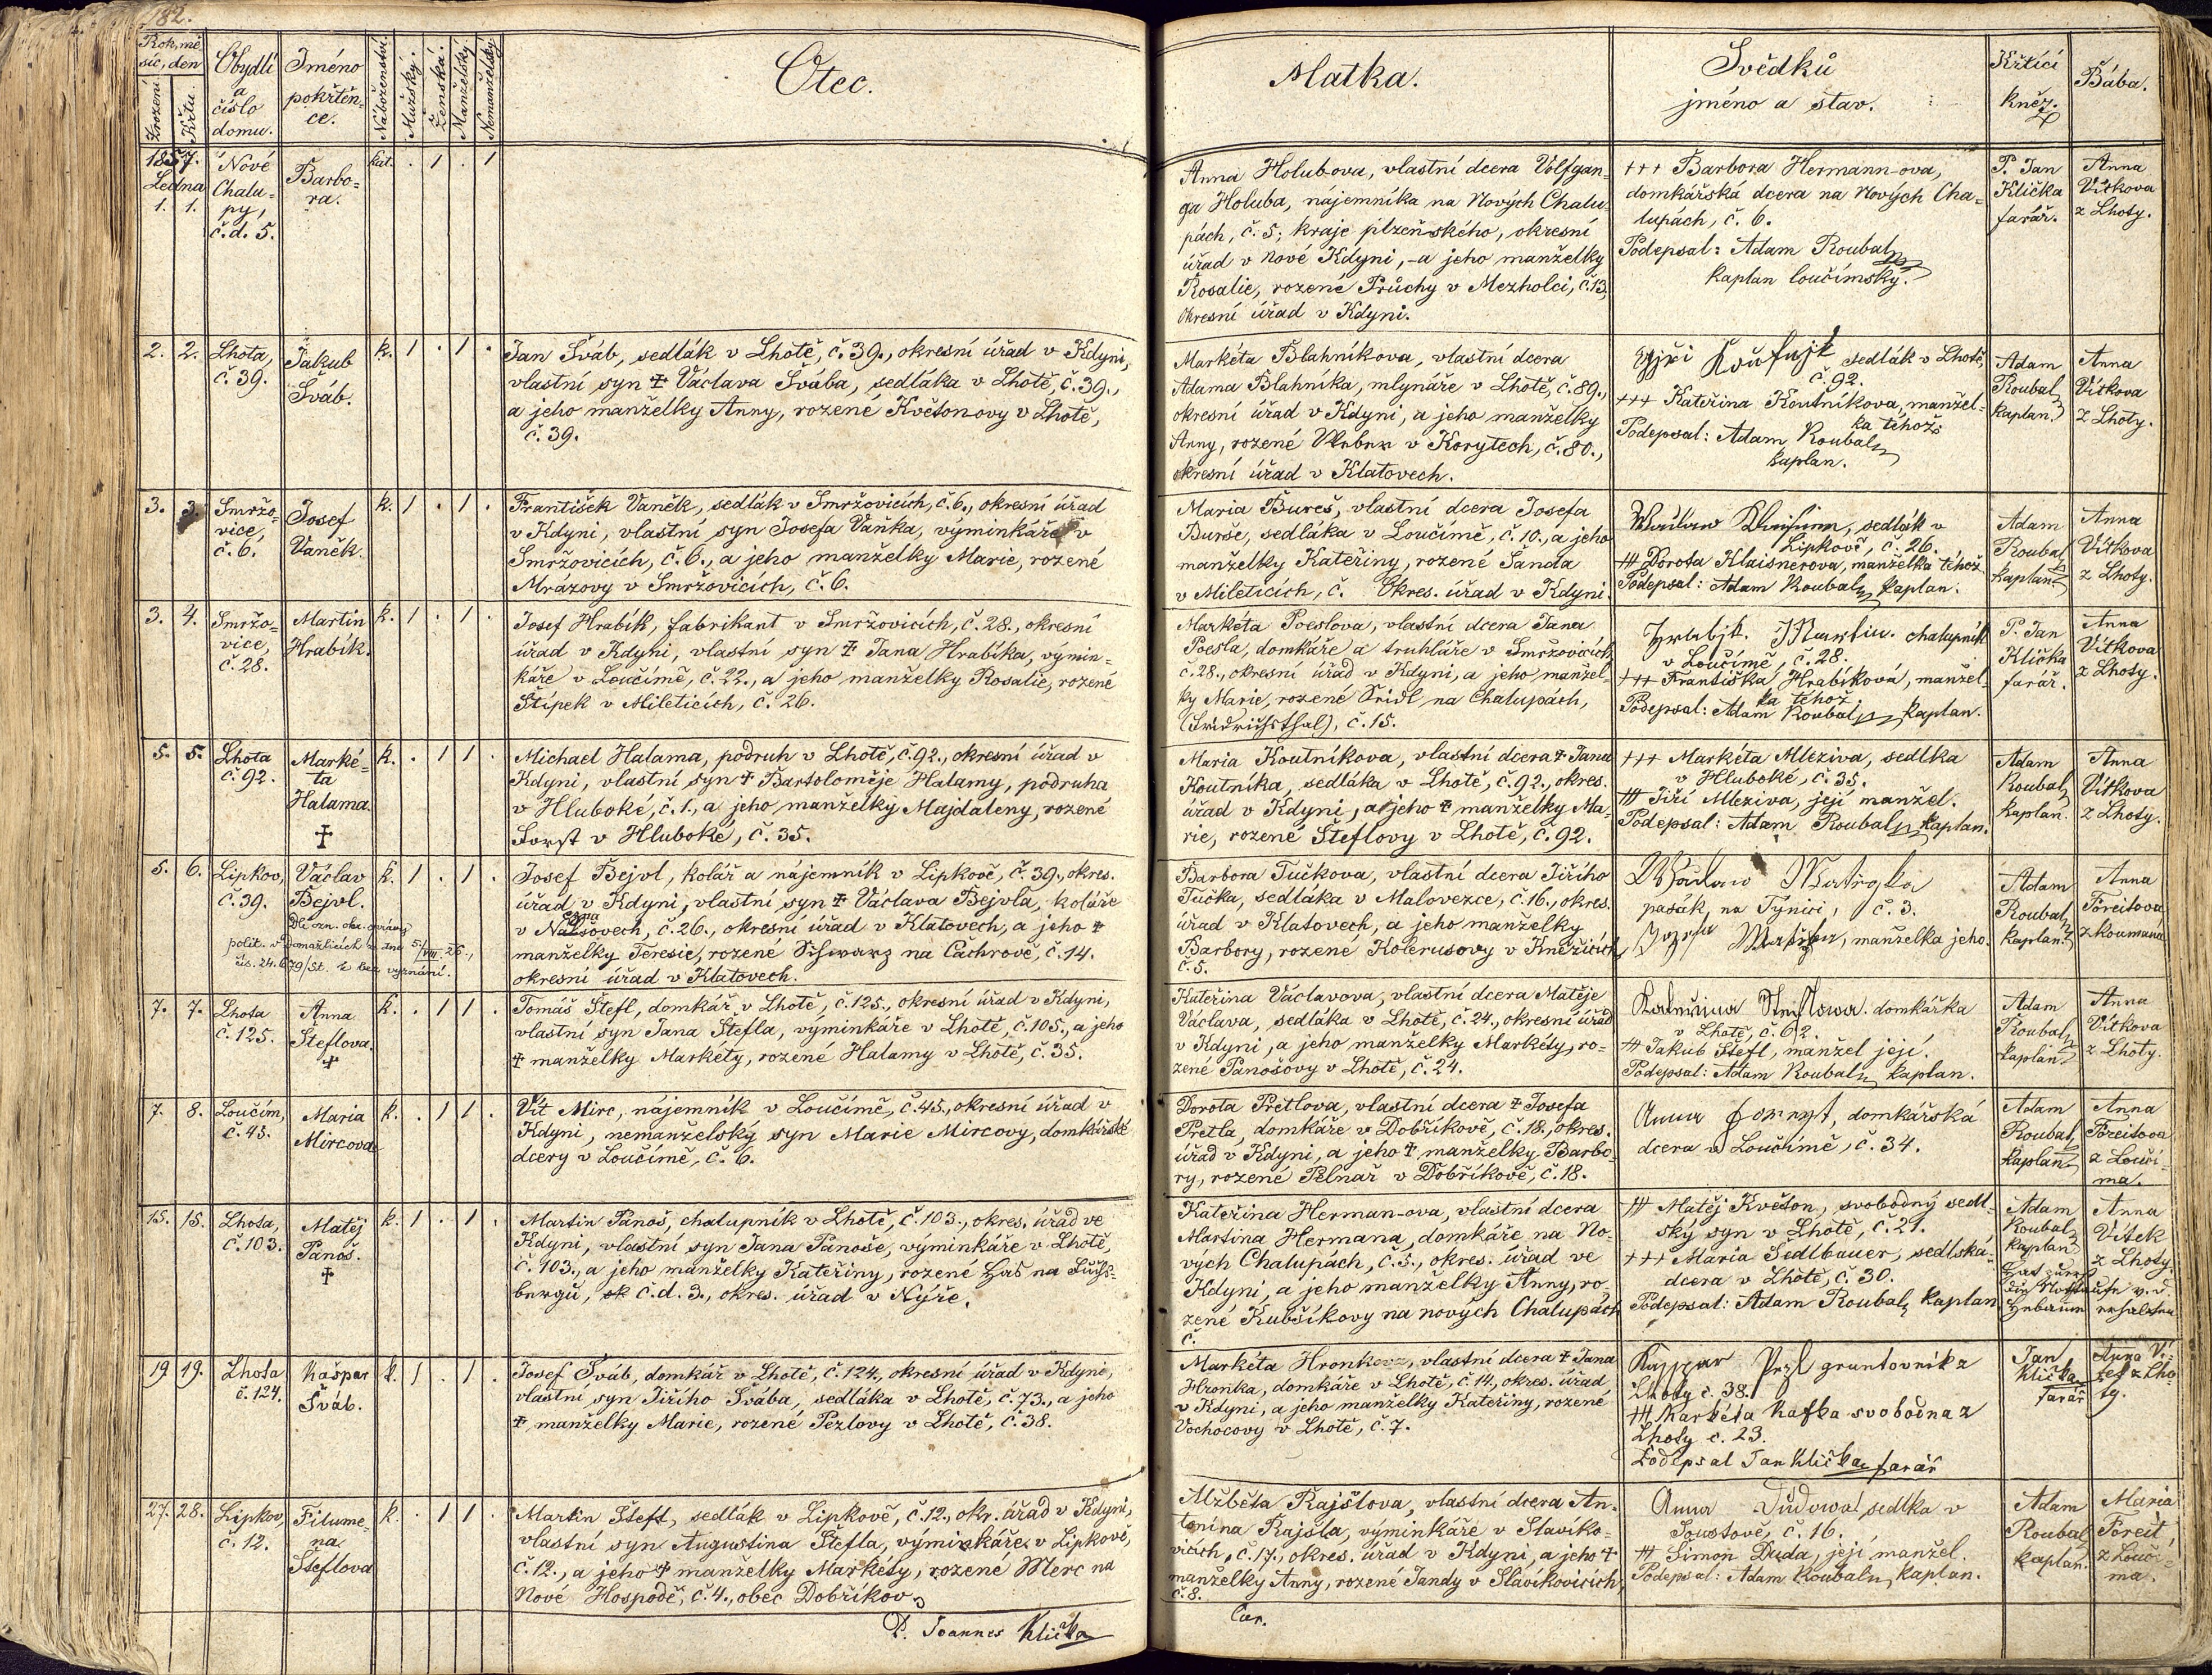 182.
Rok, mě-
síc, den
Zrození
Křtu.
Obydlí
a
číslo
domu.
Jméno
pokřtěn-
ce.
Náboženství.
Mužský.
Ženská.
Manželský.
Nemanželský.
Otec.
Matka.
Svědků
jméno a stav.
Křtící
kněz.
Bába.
1857.
Ledna
1. 1.
Nové
Chalu-
py,
č.d. 5.
Barbo-
ra.
kat. . 1 . 1
Anna Holub-ova, vlastní dcera Volfgan-
ga Holuba, nájemníka na Nových Chalu-
pách, č. 5; kraje plzeňského, okresní
úřad v Nové Kdyni, a jeho manželky
Rosalie, rozené Průchy v Mezholci, č. 13,
okresní úřad v Kdyni.
+++ Barbora Hermann-ova,
domkářská dcera na Nových Cha-
lupách, č. 6.
Podepsal: Adam Roubal
kaplan loučímský.
P. Jan
Klička
farář.
Anna
Vítkova
z Lhoty.
2. 2.
Lhota,
č. 39.
Jakub
Šváb.
k. 1 . 1 .
Jan Šváb, sedlák v Lhotě, č. 39., okresní úřad v Kdyni,
vlastní syn ‡ Václava Švába, sedláka v Lhotě, č. 39.,
a jeho manželky Anny, rozené Květonovy v Lhotě,
č. 39.
Markéta Blahníkova, vlastní dcera
Adama Blahníka, mlynáře v Lhotě, č. 89.,
okresní úřad v Kdyni, a jeho manželky
Anny, rozené v Korytech, č. 80.,
okresní úřad v Klatovech.
sedlák v Lhotě,
č. 92.
+++ Kateřina Koutníkova, manžel-
ka téhož
Podepsal: Adam Roubal
kaplan.
Adam
Roubal
kaplan
Anna
Vítkova
z Lhoty.
3. 3.
Smržo-
vice,
č. 6.
Josef
Vaněk.
k. 1 . 1 .
František Vaněk, sedlák v Smržovicích, č. 6., okresní úřad
v Kdyni, vlastní syn Josefa Vaňka, výminkáře v
Smržovicích, č. 6., a jeho manželky Marie, rozené
Mrázovy v Smržovicích, č. 6.
Maria Bureš, vlastní dcera Josefa
Burše, sedláka v Loučímě, č. 10., a jeho
manželky Kateřiny, rozené Šanda
v Mileticích, č. Okres. úřad v Kdyni.
sedlák v
Lipkově, č. 26.
+++ Dorota Klaisnerova, manželka téhož
Podepsal: Adam Roubal kaplan.
Adam
Roubal
kaplan
Anna
Vítkova
z Lhoty.
3. 4.
Smržo-
vice,
č. 28.
Martin
Hrabík.
k. 1 . 1 .
Josef Hrabík, fabrikant v Smržovicích, č. 28., okresní
úřad v Kdyni, vlastní syn ‡ Jana Hrabíka, výmin-
káře v Loučímě, č. 22., a jeho manželky Rosalie, rozené
Štípek v Mileticích, č. 26.
Markéta Poeslova, vlastní dcera Jana
Poesla, domkáře a truhláře v Smržovicích
č. 28., okresní úřad v Kdyni, a jeho manžel-
ky Marie, rozené Fridl na Chalupách,
(Fridrichsthal), č. 15.
Hrabjk Martin. chalupník
v Loučímě, č. 28.
+++ Františka Hrabíková, manžel-
ka téhož.
Podepsal: Adam Roubal kaplan.
P. Jan
Klička
farář.
Anna
Vítkova
z Lhoty.
5. 5.
Lhota
č. 92.
Marké-
ta
Halama.
†
k. . 1 1 .
Michael Halama, podruh v Lhotě, č. 92., okresní úřad v
Kdyni, vlastní syn ‡ Bartoloměje Halamy, podruha
v Hluboké, č. 1., a jeho manželky Majdaleny, rozené
Forst v Hluboké, č. 35.
Maria Koutníkova, vlastní dcera ‡ Jana
Koutníka, sedláka v Lhotě, č. 92., okres.
úřad v Kdyni, a jeho ‡ manželky Ma-
rie, rozené Šteflovy v Lhotě, č. 92.
+++ Markéta Mleziva, sedlka
v Hluboké, č. 35.
+++ Jiří Mleziva, její manžel.
Podepsal: Adam Roubal kaplan.
Adam
Roubal
kaplan.
Anna
Vítkova
z Lhoty.
5. 6.
Lipkov,
č. 39.
Václav
Bejvl.
Dle ozn. okr. správy
polit. v Domažlicích ze dne 5./VIII. 26.,
čís. 24.679/St. je bez vyznání.
k. 1 . 1 .
Josef Bejvl, kolář a nájemník v Lipkově, č. 39., okres.
úřad v Kdyni, vlastní syn ‡ Václava Bejvla, koláře
v č. 26., okresní úřad v Klatovech, a jeho ‡
manželky Teresie, rozené Schwarz na Čachrově, č. 14.
okresní úřad v Klatovech.
Barbora Tučkova, vlastní dcera Jiřího
Tučka, sedláka v Malovezce, č. 16., okres.
úřad v Klatovech, a jeho manželky
Barbory, rozené Kolerusovy v Kněžicích,
č. 5.
Wáclaw
pasák, na Týnici, č. 3.
manželka jeho.
Adam
Roubal
kaplan.
Anna
Foreitova
z Loumana
7. 7.
Lhota
č. 125.
Anna
Šteflova.
†
k. . 1 1 .
Tomáš Štefl, domkář v Lhotě, č. 125., okresní úřad v Kdyni,
vlastní syn Jana Štefla, výminkáře v Lhotě, č. 105., a jeho
‡ manželky Markéty, rozené Halamy v Lhotě, č. 35.
Kateřina Václavova, vlastní dcera Matěje
Václava, sedláka v Lhotě, č. 24., okresní úřad
v Kdyni, a jeho manželky Markéty, ro-
zené Panošovy v Lhotě, č. 24.
domkářka
v Lhotě, č. 62.
+++ Jakub Štefl, manžel její.
Podepsal: Adam Roubal kaplan.
Adam
Roubal
kaplan
Anna
Vítkova
z Lhoty.
7. 8.
Loučím,
č. 45.
Maria
Mircova
k. . 1 1 .
Vít Mirc, nájemník v Loučímě, č. 45., okresní úřad v
Kdyni, nemanželský syn Marie Mircovy, domkářské
dcery v Loučímě, č. 6.
Dorota Pretlova, vlastní dcera ‡ Josefa
Pretla, domkáře v Dobříkově, č. 18., okres.
úřad v Kdyni, a jeho ‡ manželky Barbo-
ry, rozené Pelnař v Dobříkově, č. 18.
Anna domkářská
dcera v Loučímě, č. 34.
Adam
Roubal
kaplan
Anna
Foreitova
z Loučí-
ma.
15. 15.
Lhota,
č. 103.
Matěj
Panoš.
†
k. 1 . 1 .
Martin Panoš, chalupník v Lhotě, č. 103., okres. úřad ve
Kdyni, vlastní syn Jana Panoše, výminkáře v Lhotě,
č. 103., a jeho manželky Kateřiny, rozené Has na Fuchs-
bergu, č.d. 3., okres. úřad v Nýře.
Kateřina Herman-ova, vlastní dcera
Martina Hermana, domkáře na No-
vých Chalupách, č. 5., okres. úřad ve
Kdyni, a jeho manželky Anny, ro-
zené Kubšíkovy na nových Chalupách
č.
+++ Matěj Květon, svobodný sedl-
ský syn v Lhotě, č. 21.
+++ Maria Sedlbauer, sedlská
dcera v Lhotě, č. 30.
Podepsal: Adam Roubal kaplan
Adam
Roubal
kaplan
Anna
Vítek
z Lhoty.
19 19.
Lhota
č. 124.
Kašpar
Šváb.
k. 1 . 1 .
Josef Šváb, domkář v Lhotě, č. 124., okresní úřad v Kdyni,
vlastní syn Jiřího Švába, sedláka v Lhotě, č. 73., a jeho
‡ manželky Marie, rozené Pezlovy v Lhotě, č. 38.
Markéta vlastní dcera ‡ Jana
Hronka, domkáře v Lhotě, č. 14., okres. úřad
v Kdyni, a jeho manželky Kateřiny, rozené
Vochocovy v Lhotě, č. 7.
gruntovník z
Lhoty č. 38.
+++ Markéta Kafka svobodna z
Lhoty č. 23.
Podepsal Jan Klička farář
Jan
Klička
farář
Anna Ví-
tek z Lho
ty.
27. 28.
Lipkov,
č. 12.
Filume-
na
Šteflova
k. . 1 1 .
Martin Štefl, sedlák v Lipkově, č. 12., okr. úřad v Kdyni,
vlastní syn Augustina Štefla, výminkáře v Lipkově,
č. 12., a jeho ‡ manželky Markéty, rozené Merc na
Nové Hospodě, č. 4., obec Dobříkov.
Alžběta Rajšlova, vlastní dcera An-
tonína Rajšla, výminkáře v Slavíko-
vicích, č. 17., okres. úřad v Kdyni, a jeho ‡
manželky Anny, rozené Jandy v Slavíkovicích,
č. 8.
Anna Dudowa sedlka v
Soustově, č. 16.
+++ Simon Duda, její manžel.
Podepsal: Adam Roubal kaplan.
Adam
Roubal
kaplan.
Maria
Foreit,
z Loučí-
ma.
P. Joannes Klička
Cur.